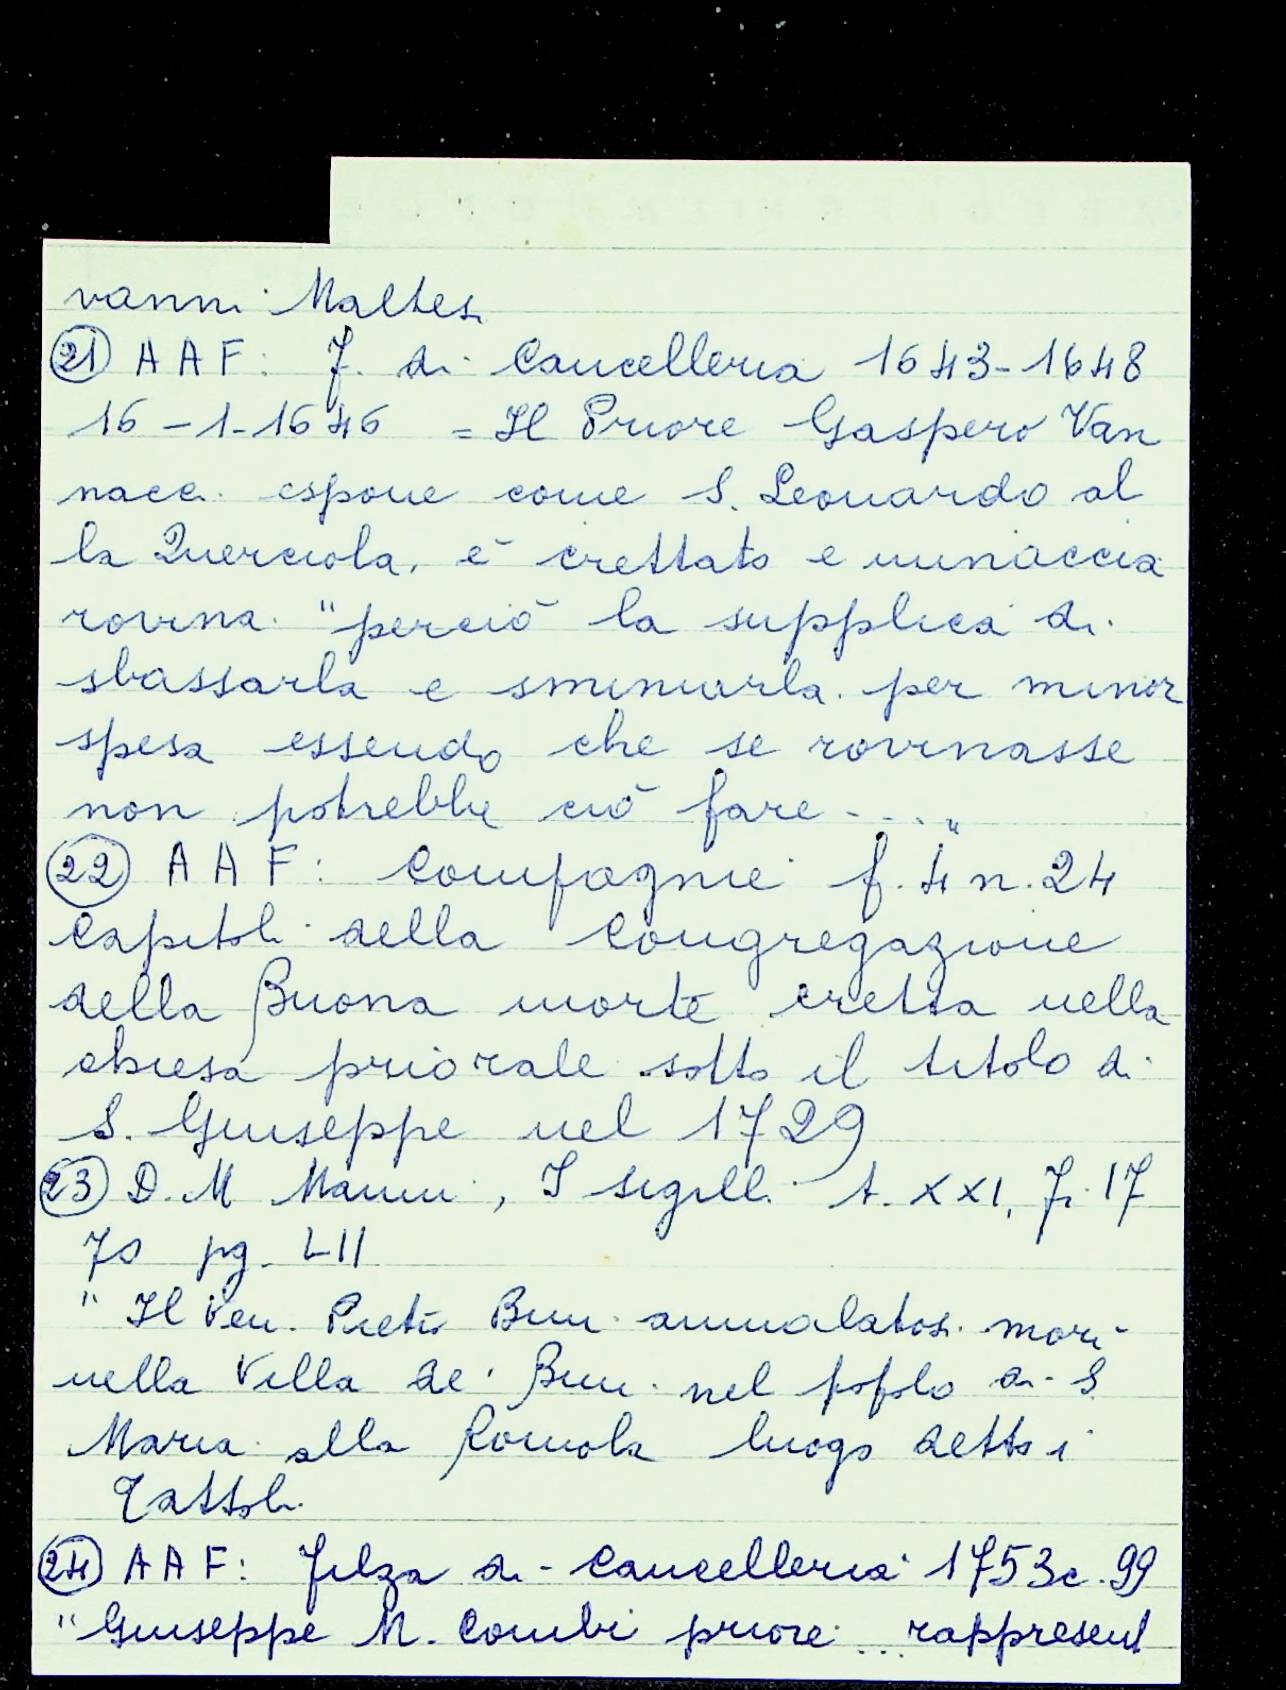 vanni Maltesi
(21) A A F: F. di Cancelleria 1643-1648
16-1-1646 = Il Priore Gaspero Van
nacci espone come S. Leonardo al
la Querciola, è crettato e minaccia
rovina. "perciò la supplica di
sbassarla e sminuirla per minor
spesa essendo che se rovinasse
non potrebbe ciò fare ...."
(22) A A F: Compagnie f. 4 n. 24
Capitoli della Congregazione
della Buona morte eretta nella
chiesa priorale sotto il titolo di
S. Giuseppe nel 1729
(23) D. M Manni, I sigilli t. XXI, Fi 17
70 pg. LII
"Il Ven. Pietro Bini ammalatosi morì
nella Villa de' Bini nel popolo di S.
Maria alla Romola luogo detto i
Tattoli
(24) A A F: Filza di Cancelleria 1753 c. 99
"Giuseppe M. Combi priore ... rappresent